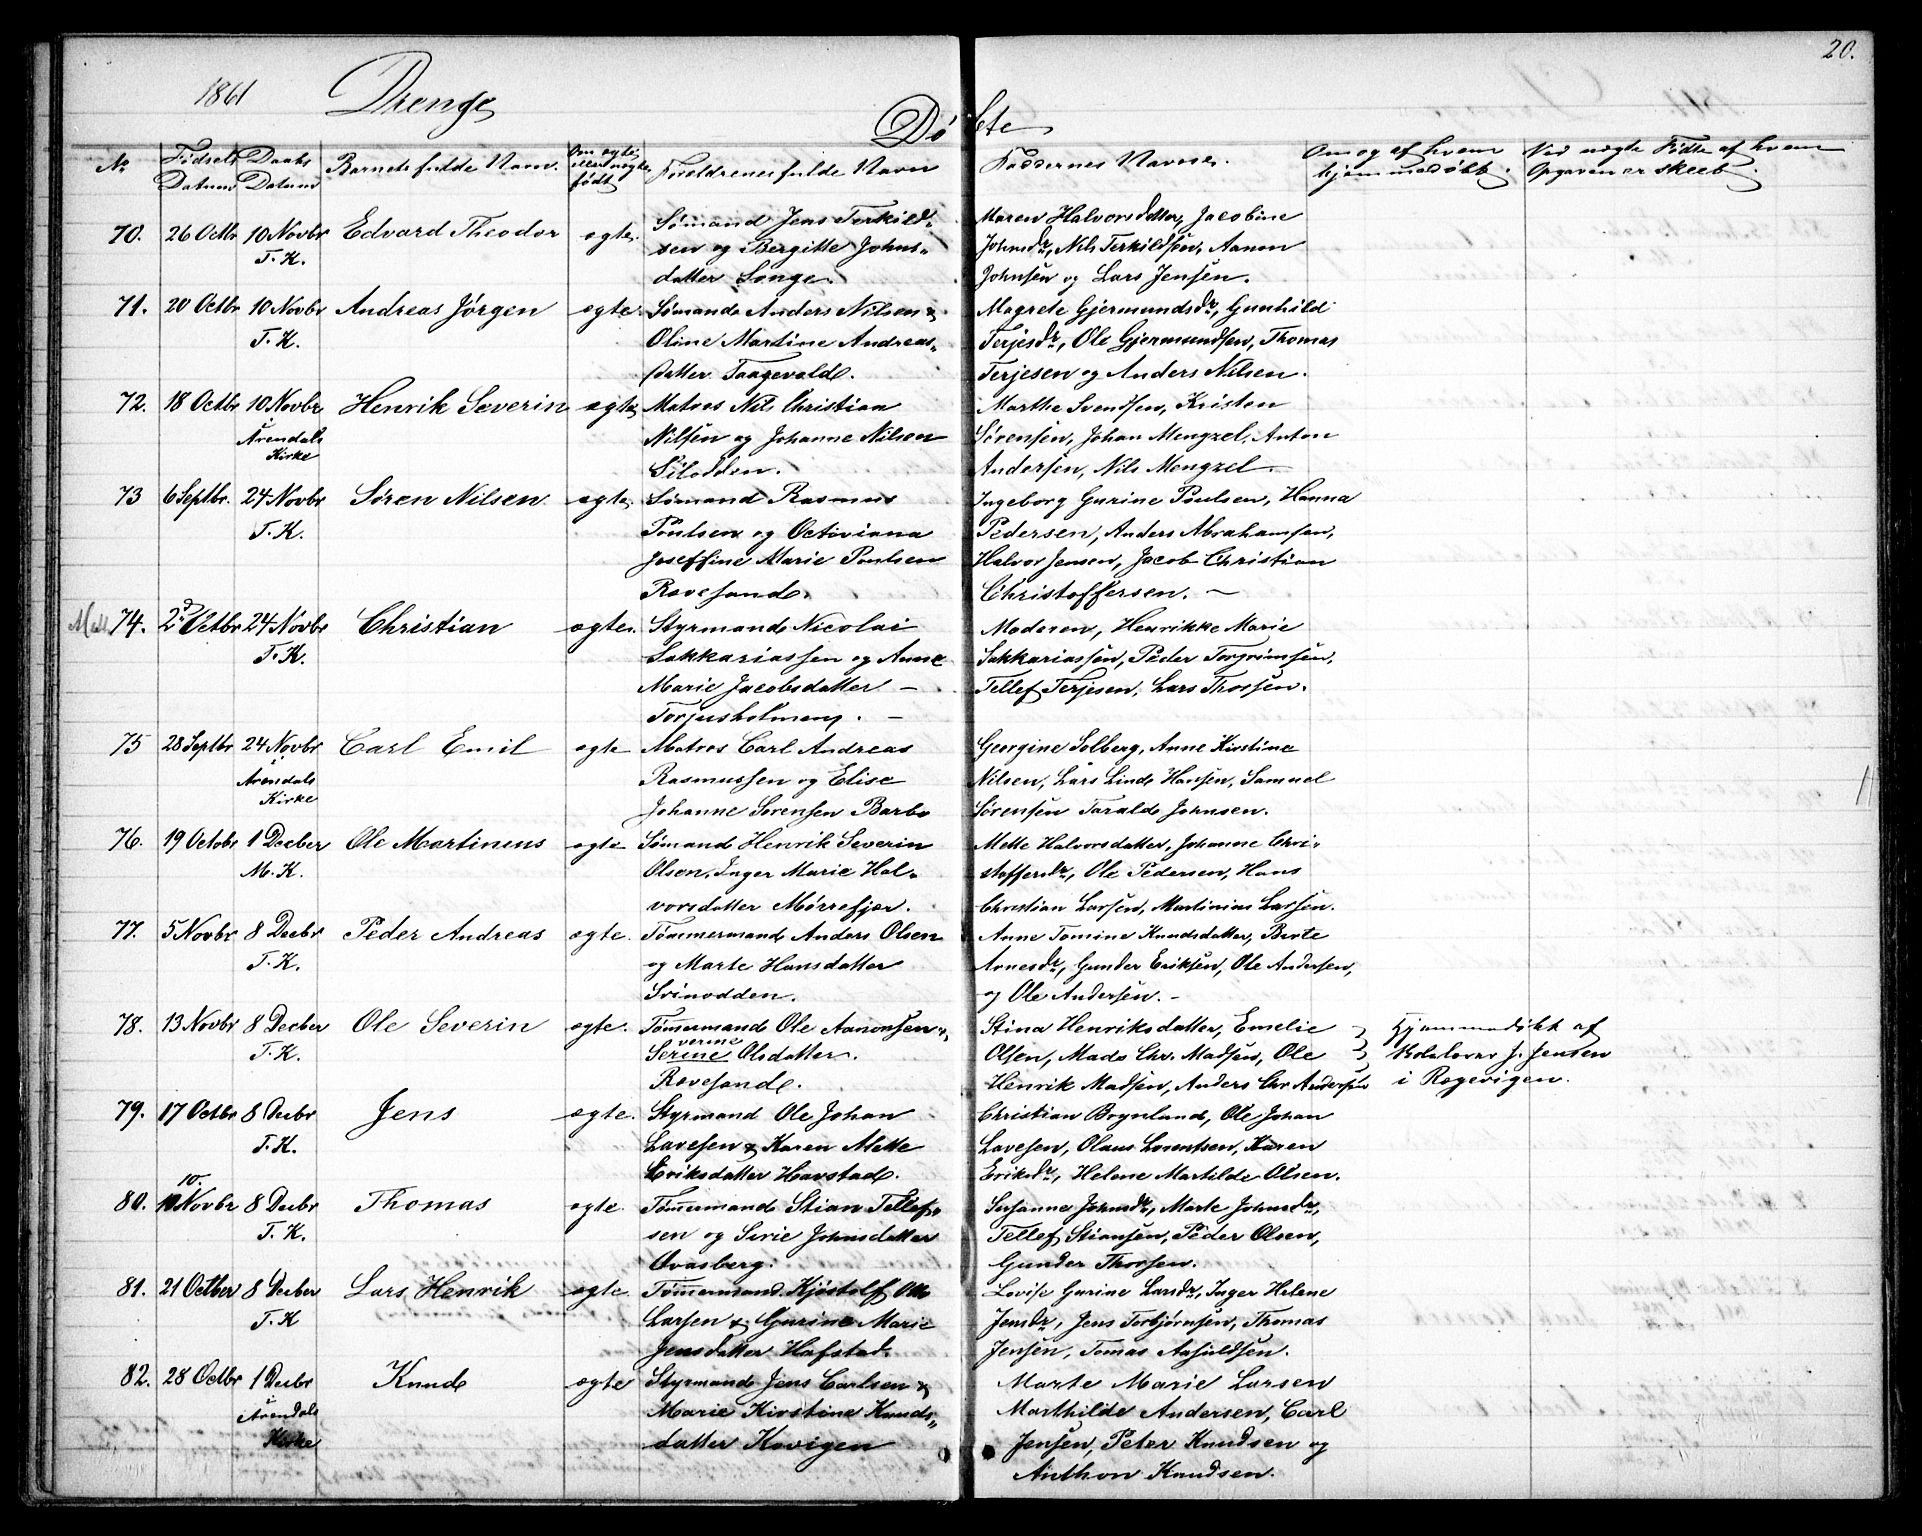 20.
1861 Drenge
Døbte
No Fødsels Datum Daabs Datum Barnets fulde Navn. Om ægte eller uægte født Forældrenes fulde Navn Faddernes Navne. Om og af hvem hjemmedøbt. Ved uægte Fødte af hvem Opgaven er skeet.
70. 26 Octbr 10 Novbr Edvard Theodor ægte. Sømand Jens Terkild- Maren Halvorsdatter, Jacobine
T. K. sen og Bergitte Johns- Johnsdr, Nils Terkildsen, Aanon
datter Songe. Johnsen og Lars Jensen.
71. 20 Octbr 10 Novbr Andreas Jørgen ægte. Sømand Anders Nilsen & Magrete Gjermundsdr, Gunhild
T. K. Oline Martine Andreas- Terjesdr, Ole Gjermundsen, Thomas
datter Taagevold. Terjesen og Anders Nilsen.
72. 18 Octbr 10 Novbr Henrik Severin ægte Matros Nils Christian Marthe Svendsen, Kristen
Arendals Nilsen og Johanne Nilsen Sørensen, Johan Mengzel, Anton
Kirke Silodden. Andersen, Nils Mengzel
73 6 Septbr. 24 Novbr Søren Nilsen ægte. Sømand Rasmus Ingeborg Gurine Poulsen, Hanna
T. K. Poulsen og Octoviana Pedersen, Anders Abrahamsen,
Joseffine Marie Poulsen Halvor Jensen, Jacob Christian
Rævesand. Christoffersen. —
74. 2d Octbr 24 Novbr Christian ægte. Styrmand Nicolai Moderen, Henrikke Marie
T. K. Sakkariassen og Anne Sakkariassen, Peder Torgrimsen,
Marie Jacobsdatter — Tellef Terjesen, Lars Thorsen.
Torjusholmen. —
75 28 Septbr 24 Novbr Carl Emil ægte Matros Carl Andreas Georgine Solberg, Anne Kirstine
Arendals Rasmussen og Elise Nilsen, Lars Lind Hansen, Samuel
Kirke Johanne Sørensen Barbo Sørensen Tarald Johnsen.
76. 19 Octobr 1 Decber Ole Martinus ægte Sømand Henrik Severin Mette Halvorsdatter, Johanne Chri-
M. K. Olsen, Inger Marie Hal- stoffersdr, Ole Pedersen, Hans
vorsdatter Mørrefjær. Christian Larsen, Martinius Larsen.
77. 5 Novbr 8 Decbr Peder Andreas ægte. Tømmermand Anders Olsen Anne Tomine Knudsdatter, Berte
T. K. og Marte Hansdatter Arnesdr, Gunder Eriksen, Ole Andersen,
Svinodden. og Ole Andersen. —
78. 13 Novbr 8 Decber Ole Severin ægte. Tømermand Ole Aanonsen & Stina Henriksdatter, Emelie Hjemmedøbt af
verine
T. K. Serine Olsdatter. Olsen, Mads Chr. Madsen, Ole Skolelærer J. Jensen
Rævesand. Henrik Madsen, Anders Chr Andersen i Rægevigen.
79. 17 Octbr 8 Decbr Jens ægte. Styrmand Ole Johan Christian Bognland, Ole Johan
T. K. Lavesen & Karen Mette Lavesen, Olaus Lorentsen, Karen
Eriksdatter Havstad. Eriksdr, Helene Martilde Olsen.
10.
80. Novbr 8 Decbr Thomas ægte. Tømermand Stian Tellef- Susanne Johnsdr, Marte Johnsdr,
T. K. sen og Sirie Johnsdatter Tellef Stiansen, Peder Olsen,
Ovasberg. Gunder Thorsen.
81. 21 Octber 8 Decber Lars Henrik ægte Tømermand Kjøstolf Larsen & Gurine Marie Lovise Gurine Larsdr, Inger Helene
T. K Jensdr, Jens Torbjørnsen, Thomas
Jensdatter Hafstad. Jensen, Tomas Aasuldsen.
82. 28 Octbr 1 Decbr Knud ægte Styrmand Jens Carlsen & Marte Marie Larsen
Arendals Marie Kirstine Knuds- Marthilde Andersen, Carl
Kirke datter Kovigen Jensen, Peter Knudsen og
Anthon Knudsen.